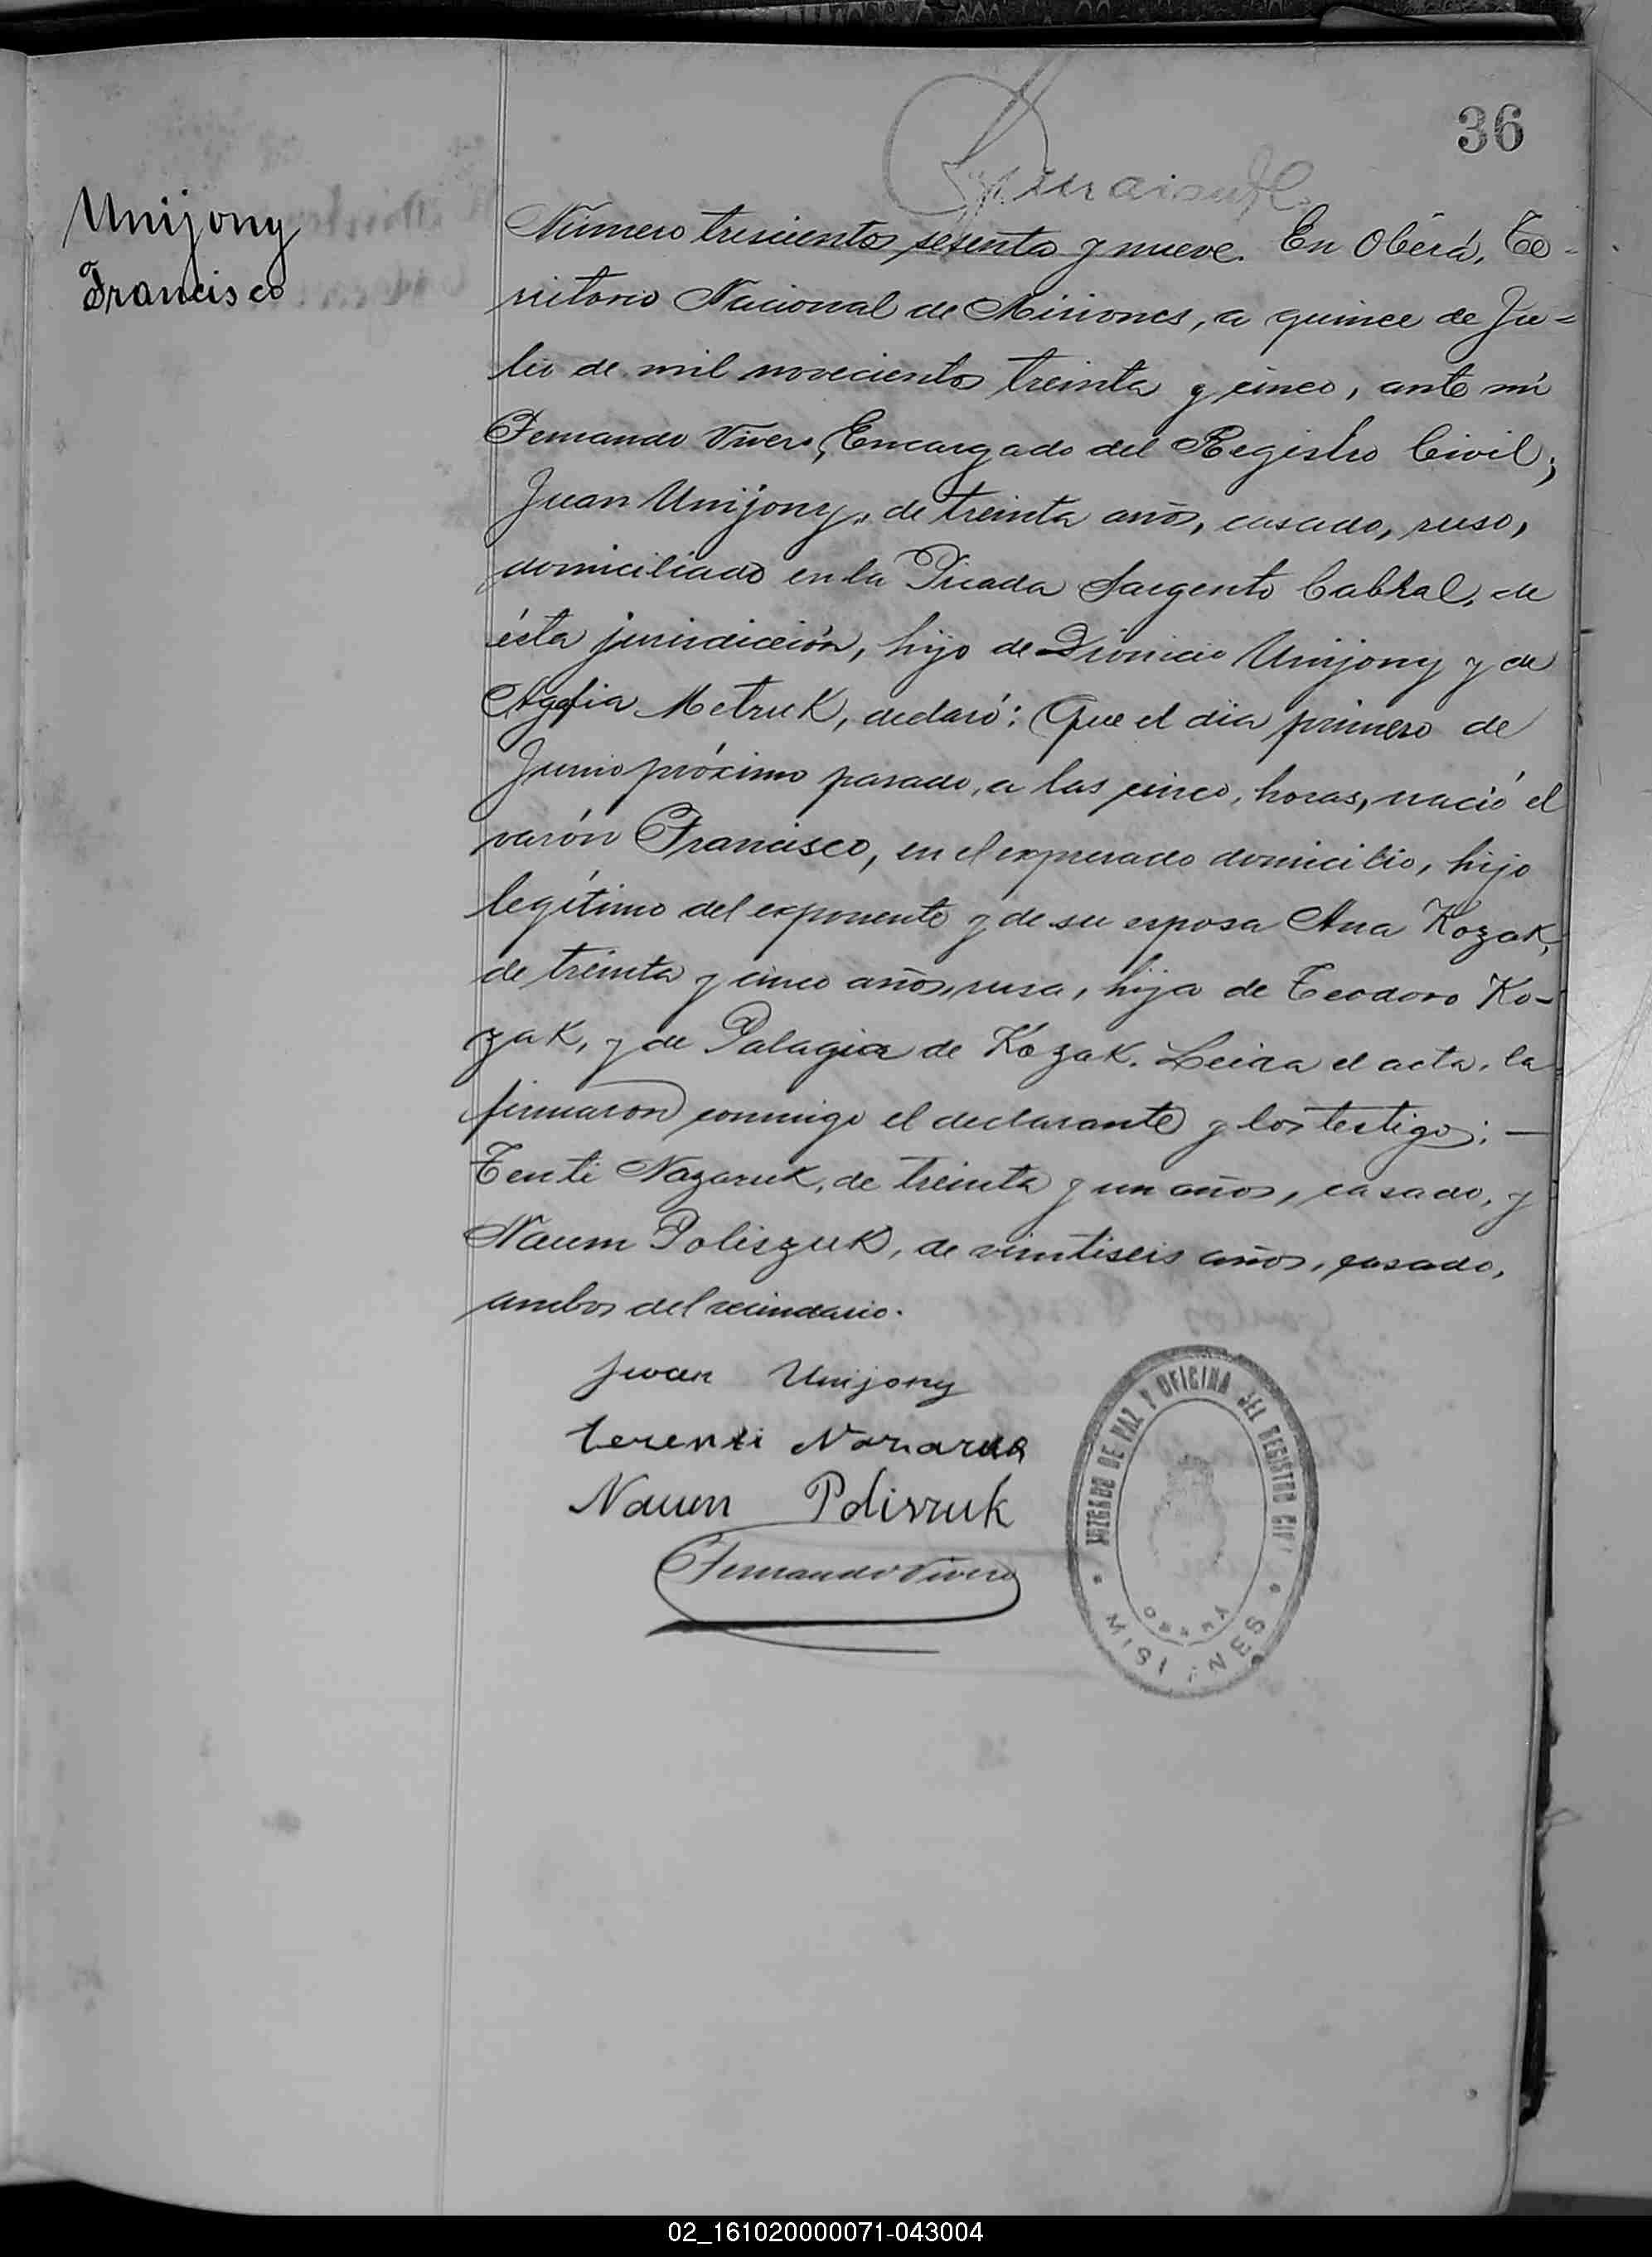 36
Unijony
Francisco
Número trescientos sesenta y nueve. En Oberá, Te-
rritorio Nacional de Misiones, a quince de Ju=
lio de mil novecientos treinta y cinco, ante mí
Fernando Vivero, Encargado del Registro Civil;
Juan Unijony, de treinta años, casado, ruso,
domiciliado en la Picada Sargento Cabral, de
ésta jurisdicción, hijo de Dionicio Unijony y de
Agafia Metruk, declaró: Que el día primero de
Junio próximo pasado, a las cinco, horas, nació el
varón Francisco, en el expresado domicilio, hijo
legítimo del exponente y de su esposa Ana Kozak,
de treinta y cinco años, rusa, hija de Teodoro Ko-
zak, y de Palagia de Kozak. Leida el acta, la
firmaron conmigo el declarante y los testigos: —
Tenti Nazaruk, de treinta y un años, casado, y
Naum Poliszuk, de vintiseis años, casado,
ambos del vecindario.
Juan Unijony
terenti Nazaruk
Naum Poliszuk
Fernando Vivero
JUZGADO DE PAZ Y OFICINA DEL REGISTRO CIVI
OBERÁ
MISIONES
02_161020000071-043004